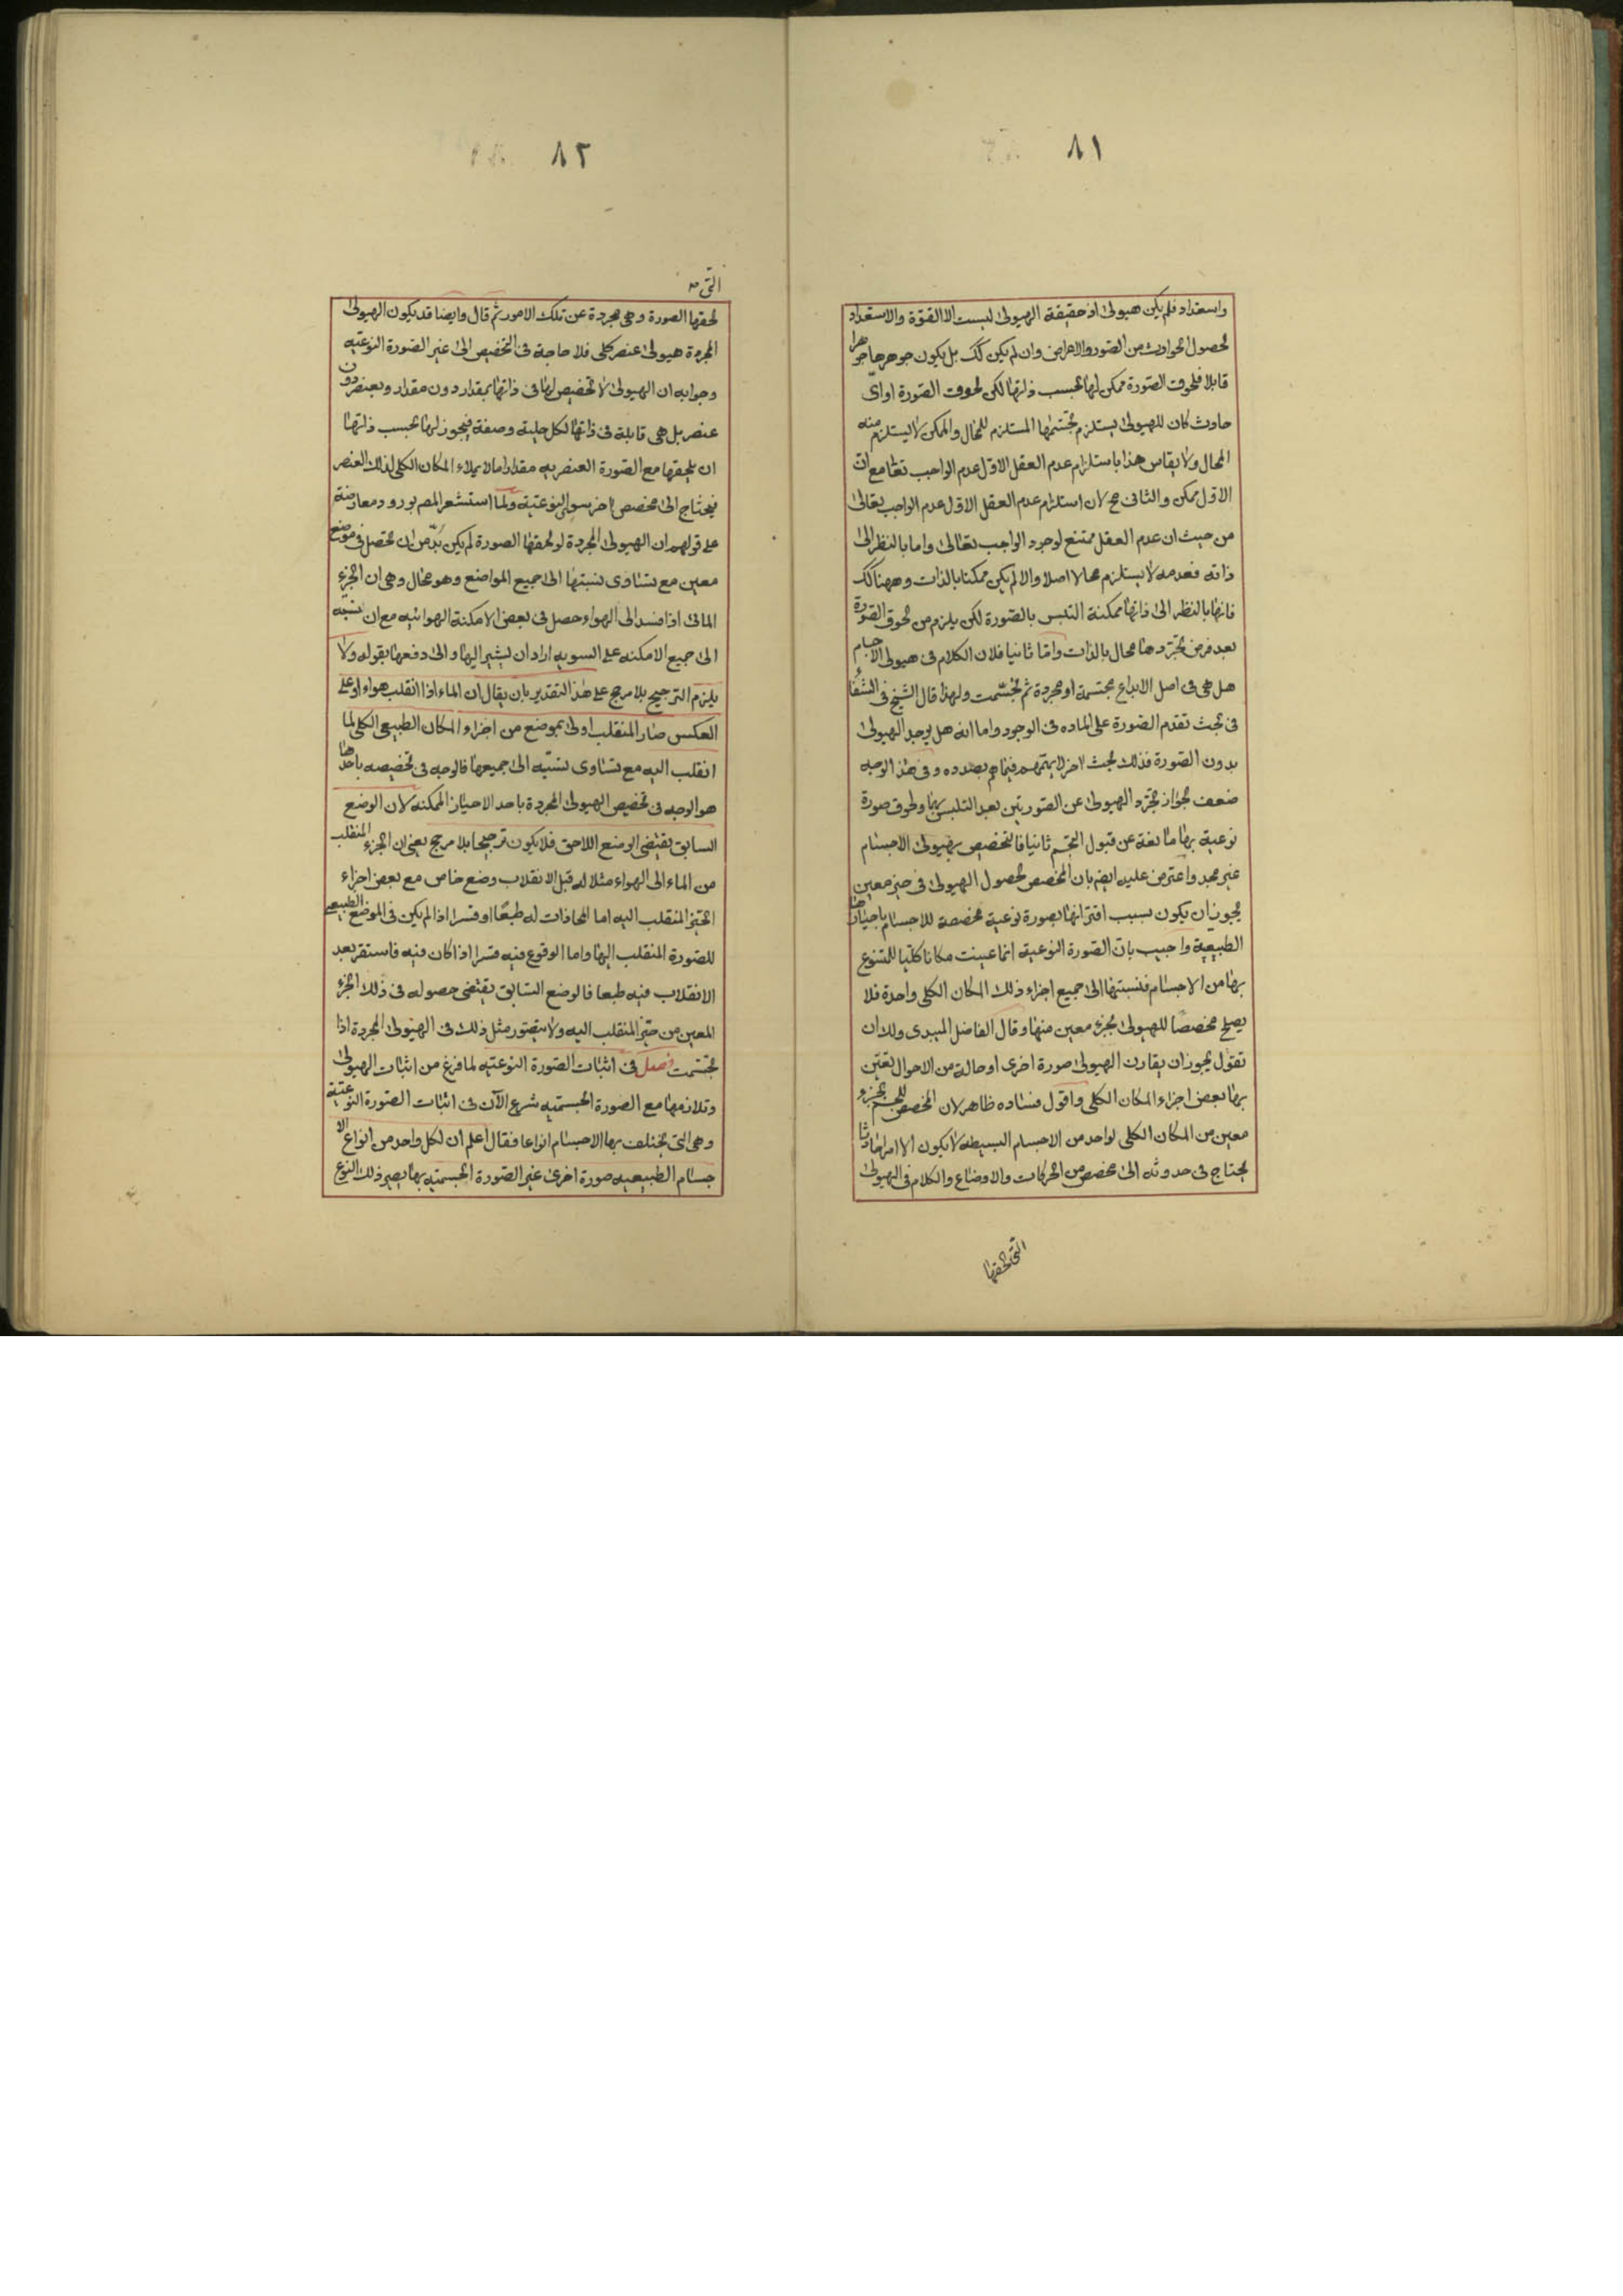 ٨١
واستعداد فلم يكن هيولى اذ حقيقة الهيولى ليست الا القوة والاستعداد
لحصول الحوادث من الصور والاعراض وان لم يكن كك بل يكون جوهرها جوهرا
قابلا فلحوق الصورة ممكن لها بحسب ذاتها لكن لحوق الصورة او اىّ
حادث كان للهيولى يستلزم تجسمها المستلزم للمحال والممكن لا يستلزم منه
المحال ولا يقاس هذا باستلزام عدم العقل الاول عدم الواجب تعا مع ان
الاول ممكن والثانى مح لان استلزام عدم العقل الاول عدم الواجب تعالى
من حيث ان عدم العقل ممتنع لوجود الواجب تعالى واما بالنظر الى
ذاته فعدمه لا يستلزم محالا اصلا والا لم يكن ممكنا بالذات وههنا كك
فانها بالنظر الى ذاتها ممكنة التلبس بالصورة لكن يلزم من لحوق الصورة
بعد فرض تجردها محال بالذات واما ثانيا فلان الكلام فى هيولى الاجسام
هل هى فى اصل الابداع مجسمة او مجردة ثم تجسمت ولهذا قال الشيخ فى الشفاء
فى بحث تقدم الصورة على الماده فى الوجود واما انه هل يوجد الهيولى
بدون الصورة فذلك بحث اخر لا يهمهم فيما هم بصدده وفى هذا الوجه
ضعف لجواز تجرد الهيولى عن الصورتين بعد التلبس بهما ولحوق صورة
نوعية بها مانعة عن قبول التجسم ثانيا فالتخصيص بهيولى الاجسام
غير مجد واعترض عليه ايضا بان المخصص لحصول الهيولى فى حيز معين
يجوز ان يكون بسبب اقترانها بصورة نوعية مخصصة للاجسام باحيازها
الطبيعية واجيب بان الصورة النوعية انما عينت مكانا كليا للمتنوع
بها من الاجسام فنسبتها الى جميع اجزاء ذلك المكان الكلى واحدة فلا
يصلح مخصصا للهيولى بجزء معين منها وقال الفاضل الميبدى ولك ان
تقول يجوز ان يقارن الهيولى صورة اخرى او حالة من الاحوال تعين
بها بعض اجزاء المكان الكلى واقول فساده ظاهر لان المخصص للجسم بجزء
معين من المكان الكلى لواحد من الاجسام البسيطه لا يكون الا امرا حادثا
يحتاج فى حدوثه الى مخصص من الحركات والاوضاع والكلام فى الهيولى
التى لحقها
٨٢
التى
لحقها الصورة وهى مجردة عن تلك الامور ثم قال وايضا قد يكون الهيولى
المجردة هيولى عنصر كلى فلا حاجة فى التخصيص الى غير الصورة النوعيه
وجوابه ان الهيولى لا تخصيص لها فى ذاتها بمقدار دون مقدار وبعنصر دون
عنصر بل هى قابلة فى ذاتها لكل حلية وصفة فيجوز لها بحسب ذاتها
ان يلحقها مع الصورة العنصريه مقدار ما لا يملاء المكان الكلى لذلك العنصر
فيحتاج الى مخصص اخر سوى النوعية ولما استشعر المص بورود معارضة
على قولهم ان الهيولى المجردة لو لحقها الصورة لم يكن بدّ من ان تحصل فى موضع
معين مع تساوى نسبتها الى جميع المواضع وهو محال وهى ان الجزء
المائى اذا فسد الى الهواء حصل فى بعض الامكنة الهوائيه مع ان نسبته
الى جميع الامكنه على السويه اراد ان يشير اليها والى دفعها بقوله ولا
يلزم الترجيح بلا مرجح على هذا التقدير بان يقال ان الماء اذا انقلب هواء او على
العكس صار المنقلب اولى بموضع من اجزاء المكان الطبيعى الكلى لما
انقلب اليه مع تساوى نسبته الى جميعها فالوجه فى تخصيصه باحدها
هو الوجه فى تخصيص الهيولى المجردة باحد الاحياز الممكنه لان الوضع
السابق يقتضى الوضع اللاحق فلا يكون ترجيحا بلا مرجح يعنى ان الجزء المنقلب
من الماء الى الهواء مثلا له قبل الانقلاب وضع خاص مع بعض اجزاء
الحيز المنقلب اليه اما المحاذات له طبعًا او قسرا اذا لم يكن فى الموضع الطبيعى
للصورة المنقلب اليها واما الوقوع فيه قسرا اذا كان فيه فاستقر بعد
الانقلاب فيه طبعا فالوضع السابق يقتضى حصوله فى ذلك الجزء
المعين من حيز المنقلب اليه ولا يتصور مثل ذلك فى الهيولى المجردة اذا
تجسمت فصل فى اثبات الصورة النوعيه لما فرغ من اثبات الهيولى
وتلازمها مع الصورة الجسميه شرع الآن فى اثبات الصورة النوعية
وهى التى يختلف بها الاجسام انواعا فقال اعلم ان لكل واحد من انواع الا
جسام الطبيعيه صورة اخرى غير الصورة الجسميه بها يصير ذلك النوع